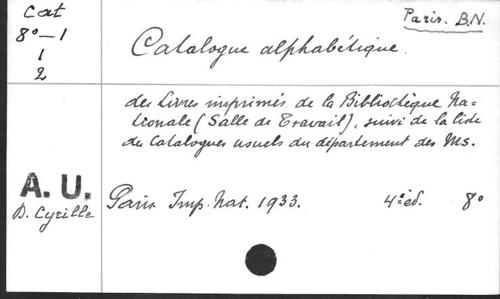 Cat
8°—1
1
2
Paris. B.N.
Catalogue alphabétique.
des Livres imprimés de la Bibliothèque Na-
tionale (Salle de Travail), suivi de la liste
des Catalogues usuels du département des Ms.
A. U.
D. Cyrille
Paris Imp. Nat. 1933. 4e ed. 8°